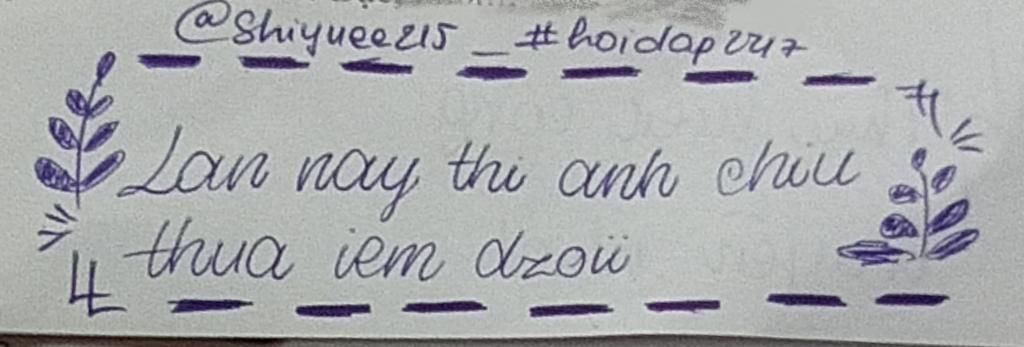 @Shiyuee215_#hoidap2247
Lan nay thi anh chiu
thua iem dzoii